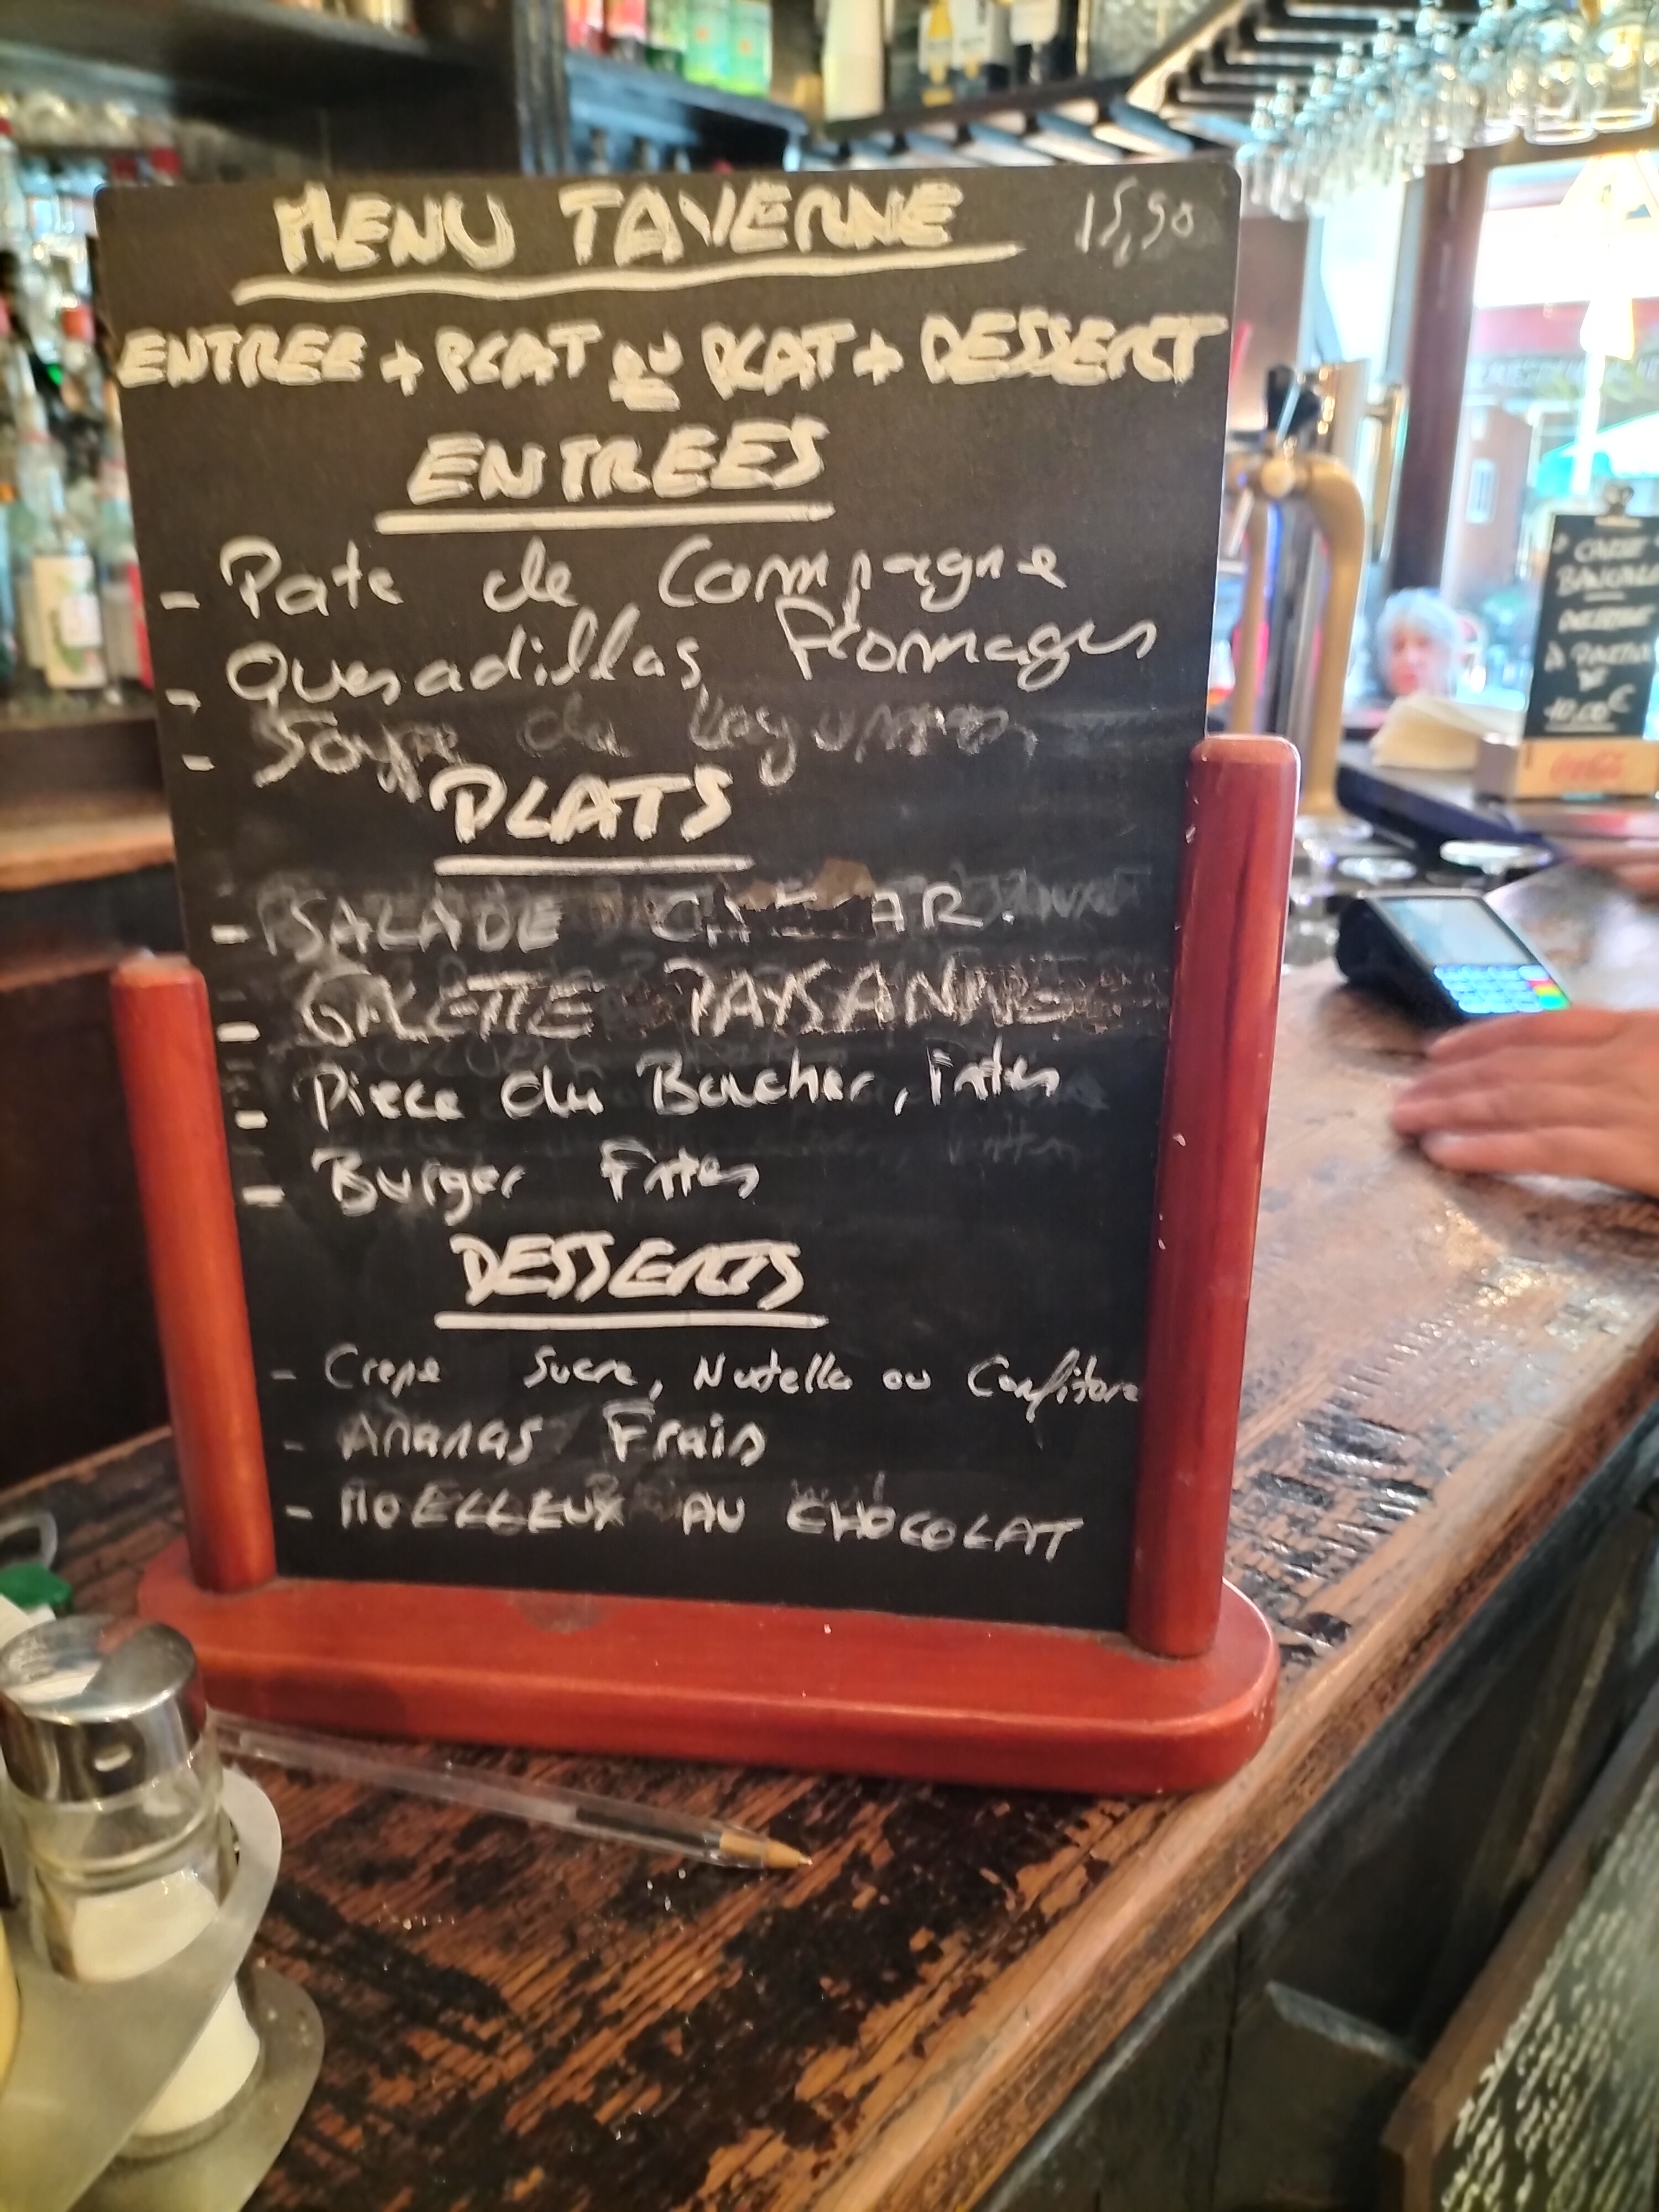 MENU TAVERNE 15,90
ENTREE + PLAT ou PLAT + DESSERT
ENTREES
- Pate de Campagne
- Quesadillas fromages
- Soupe de Legumes
PLATS
- SALADE CAESAR
- GALETTE PAYSANNE
- Piece du Boucher, Frites
- Burger Frites
DESSERTS
- Crepe Sucre, Nutella ou Confiture
- Ananas Frais
- MOELLEUX AU CHOCOLAT
CARTE
BANCAIRE
A PARTIR
10,00€
Coca-Cola